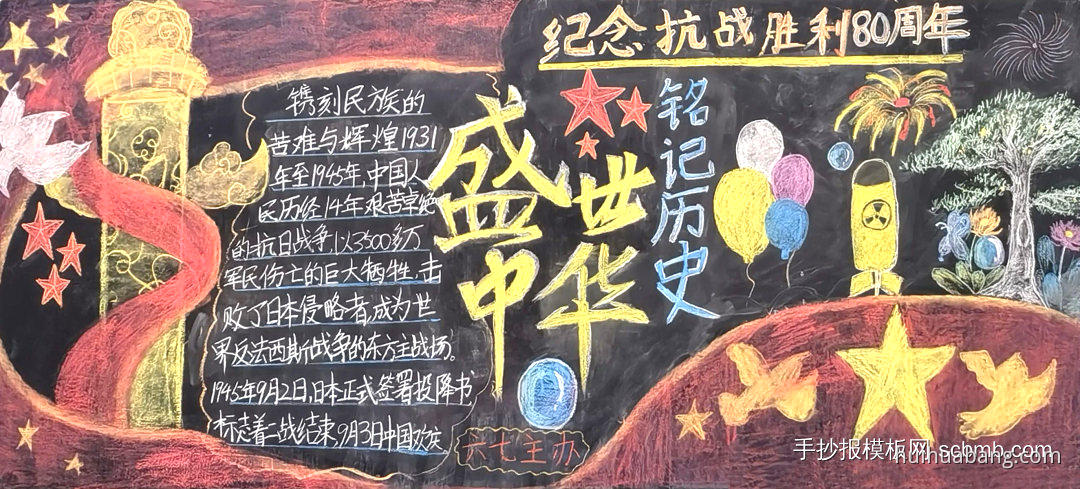 纪念抗战胜利80周年
铭记历史
盛世
中华
镌刻民族的
苦难与辉煌1931
年至1945年,中国人
民历经14年艰苦卓绝
的抗日战争,以3500多万
军民伤亡的巨大牺牲,击
败了日本侵略者,成为世
界反法西斯战争的东方主战场。
1945年9月2日,日本正式签署投降书
标志着二战结束,9月3日中国欢庆
六七主办
手抄报模板网 scbmb.com
huihuabang.com